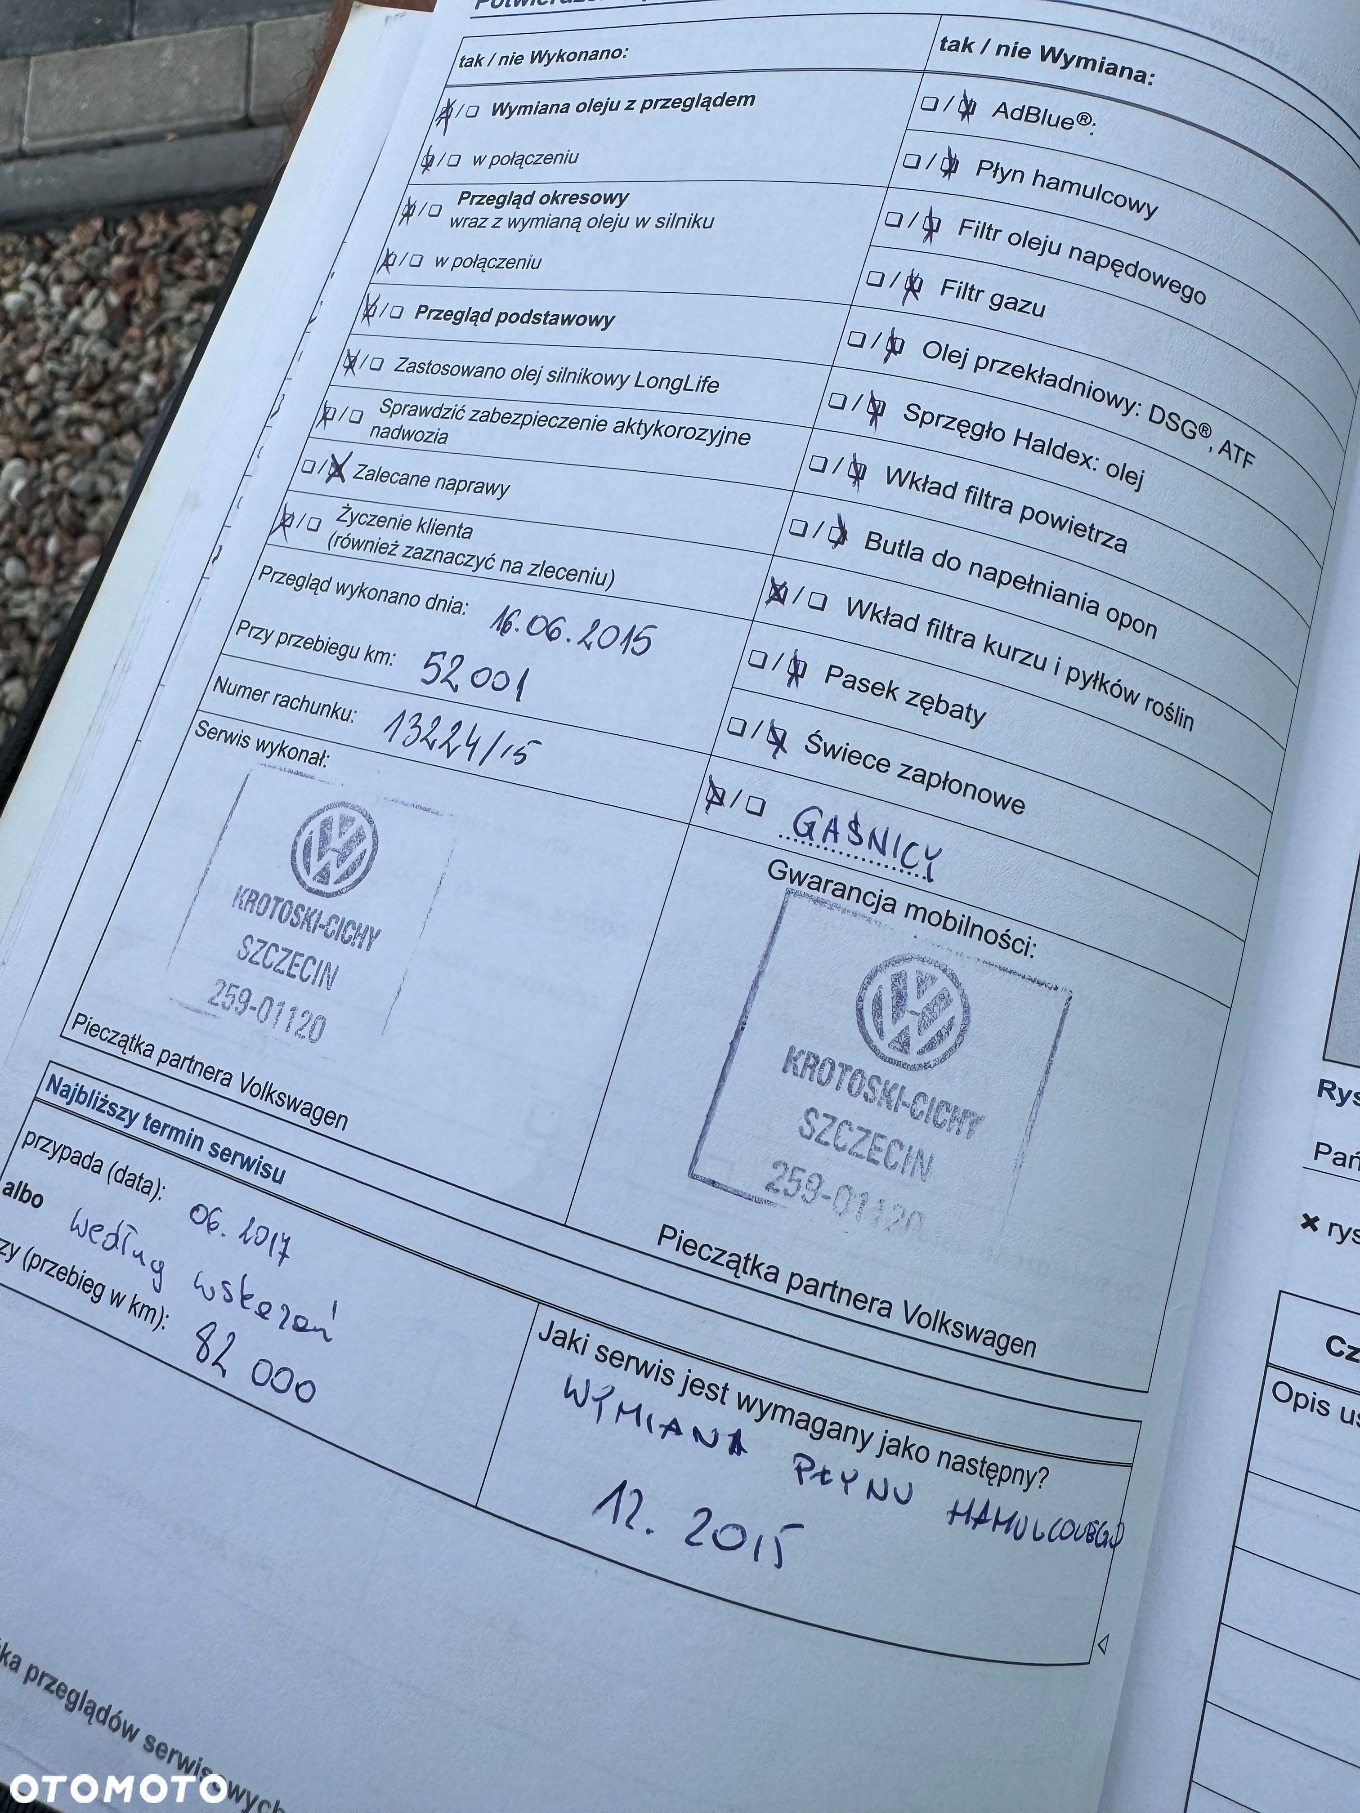 tak / nie Wykonano:
Wymiana oleju z przeglądem
w połączeniu
Przegląd okresowy
wraz z wymianą oleju w silniku
w połączeniu
Przegląd podstawowy
Zastosowano olej silnikowy LongLife
Sprawdzić zabezpieczenie aktykorozyjne
nadwozia
Zalecane naprawy
Życzenie klienta
(również zaznaczyć na zleceniu)
Przegląd wykonano dnia: 16.06.2015
Przy przebiegu km: 52 001
Numer rachunku: 13224/15
Serwis wykonał:
KROTOSKI-CICHY
SZCZECIN
259-01120
Pieczątka partnera Volkswagen
tak / nie Wymiana:
AdBlue®:
Płyn hamulcowy
Filtr oleju napędowego
Filtr gazu
Olej przekładniowy: DSG®, ATF
Sprzęgło Haldex: olej
Wkład filtra powietrza
Butla do napełniania opon
Wkład filtra kurzu i pyłków roślin
Pasek zębaty
Świece zapłonowe
GAŚNICY
Gwarancja mobilności:
KROTOSKI-CICHY
SZCZECIN
259-01120
Pieczątka partnera Volkswagen
Najbliższy termin serwisu
przypada (data): 06.2017
albo według wskazań
(przebieg w km): 82 000
Jaki serwis jest wymagany jako następny?
WYMIANA PŁYNU HAMULCOWEGO
12. 2015
przeglądów serwisowych
Opis
OTOMOTO